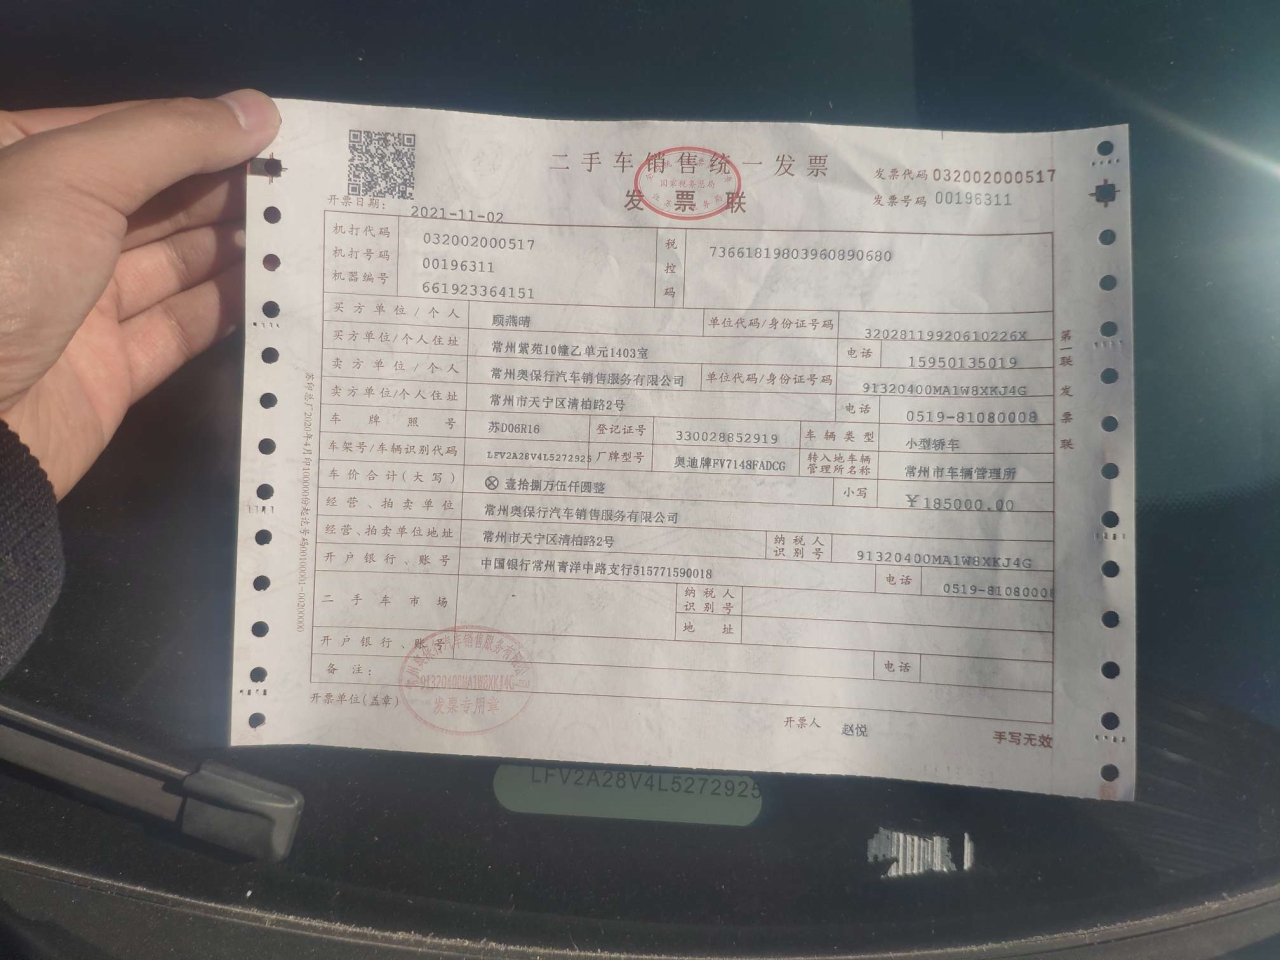 二手车销售统一发票
发票联
国家税务总局
发票代码 032002000517
发票号码 00196311
开票日期: 2021-11-02
机打代码 032002000517
机打号码 00196311
机器编号 661923364151
税控码 73661819803960890680
买方单位/个人 顾燕晴 单位代码/身份证号码 32028119920610226X
买方单位/个人住址 常州紫苑10幢乙单元1403室 电话 15950135019
卖方单位/个人 常州奥保行汽车销售服务有限公司 单位代码/身份证号码 91320400MA1W8XKJ4G
卖方单位/个人住址 常州市天宁区清柏路2号 电话 0519-81080008
车牌照号 苏D06R16 登记证号 330028852919 车辆类型 小型轿车
车架号/车辆识别代码 LFV2A28V4L5272925 厂牌型号 奥迪牌FV7148FADCG 转入地车辆管理所名称 常州市车辆管理所
车价合计(大写) ⊗ 壹拾捌万伍仟圆整 小写 ￥185000.00
经营、拍卖单位 常州奥保行汽车销售服务有限公司
经营、拍卖单位地址 常州市天宁区清柏路2号 纳税人识别号 91320400MA1W8XKJ4G
开户银行、账号 中国银行常州青洋中路支行515771590018 电话 0519-8108000
二手车市场 - 纳税人识别号
地址
开户银行、账号 电话
备注:
开票单位(盖章) 开票人 赵悦 手写无效
第一联 发票联
发票专用章
LFV2A28V4L5272925